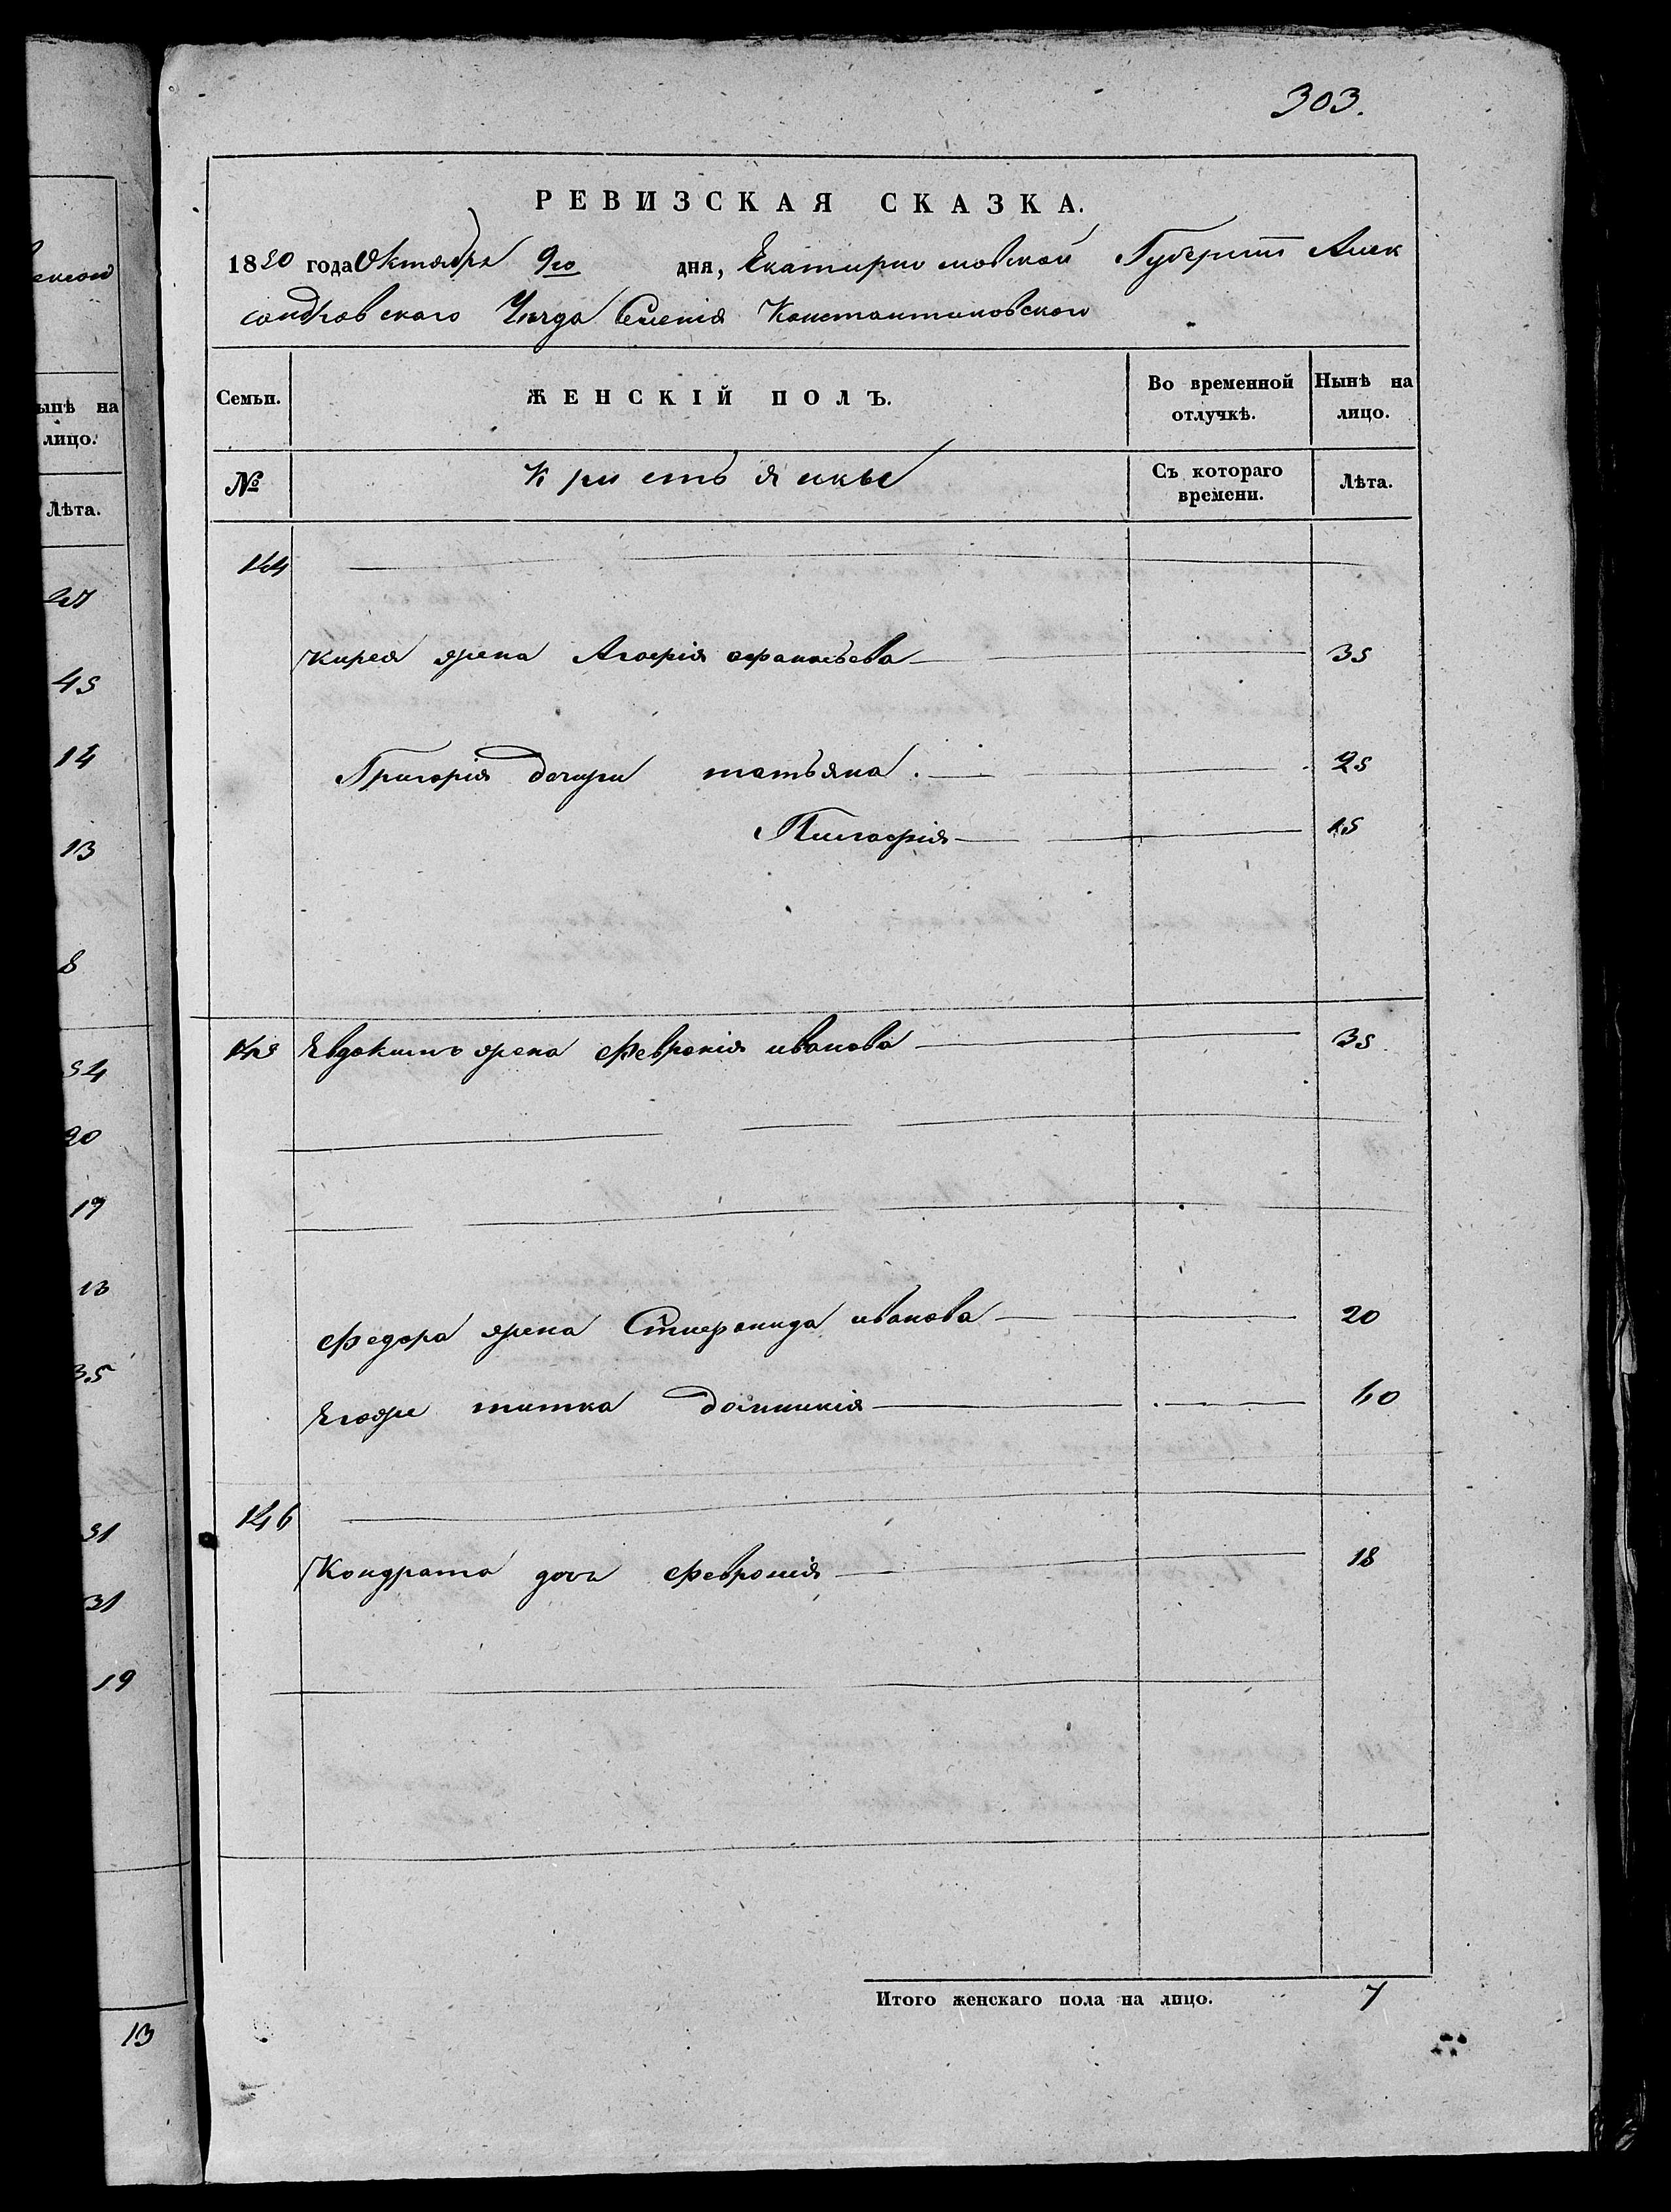 303.
РЕВИЗСКАЯ СКАЗКА.
1850 года Октября 9го дня, Екатирино славской Губернии Алек
сандровского Уезда Селения Константиновского
Семьи. ЖЕНСКІЙ ПОЛЪ. Во временной отлучкѣ. Нынѣ на лицо.
№ Кристьянкы Съ котораго времени. Лѣта.
144
Кирея жена Агафія афанасьева 35
Григорія дочери татьяна 25
Пилагфія 15
145 Евдокимъ жена Февронія иванова 35
Федора жена Стиеранида иванова 20
титка домникія 60
146
Кондрата дочь Февронія 18
Итого женскаго пола на лицо. 7
ынѣ на
лицо.
Лѣта.
27
45
14
13
8
54
20
19
13
35
31
31
19
13